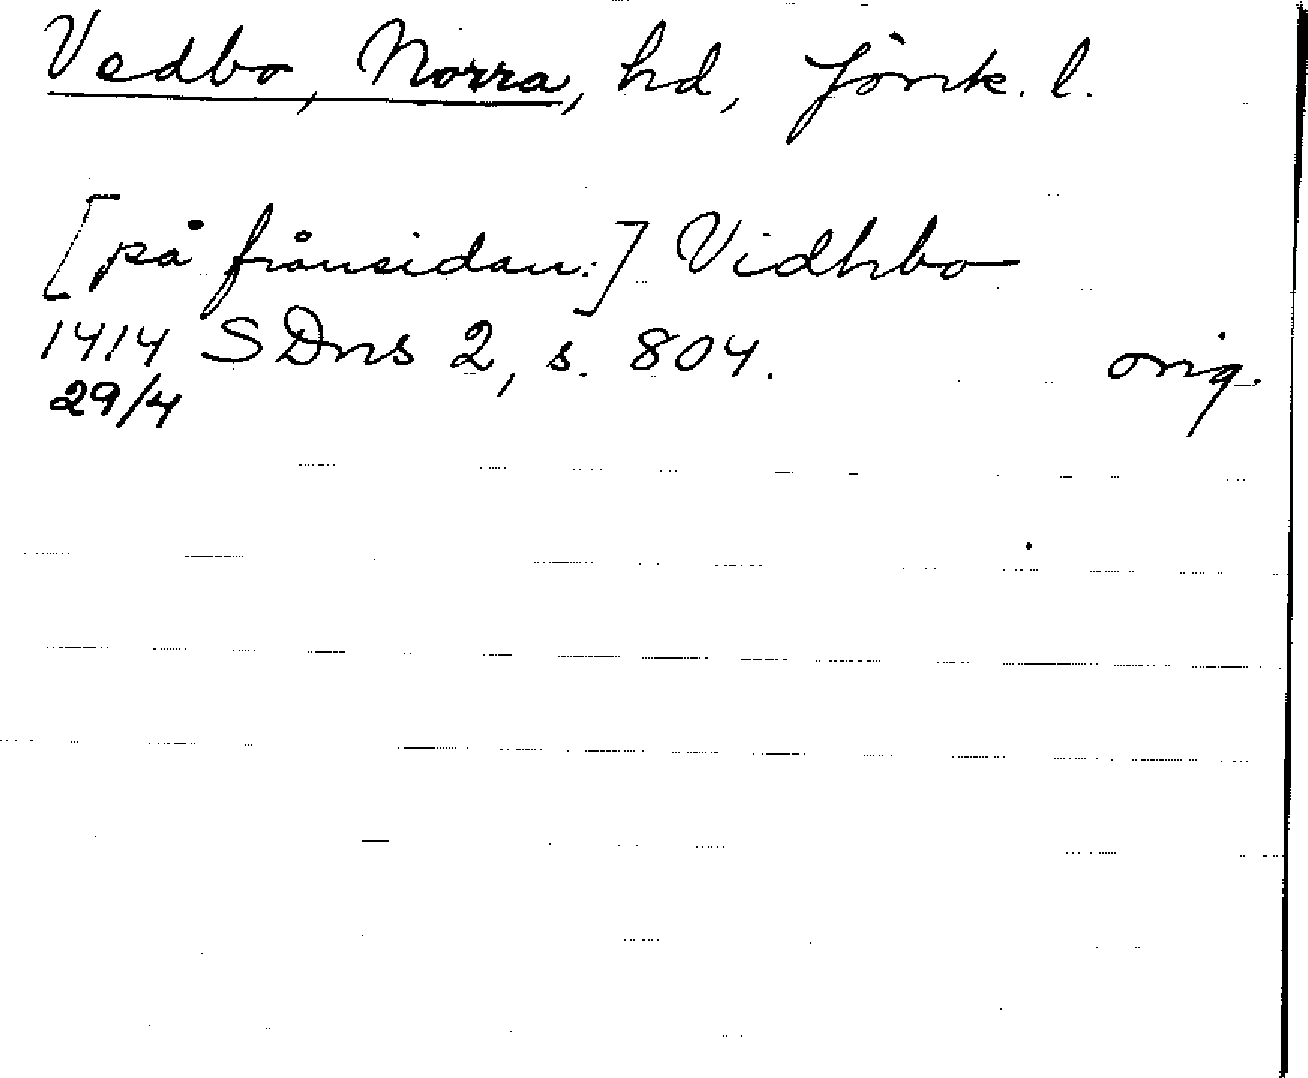 Vedbo, Norra, hd, Jönk. l.
[på frånsidan:] Vidhbo
1414 SDns 2, s. 804. orig.
29/4